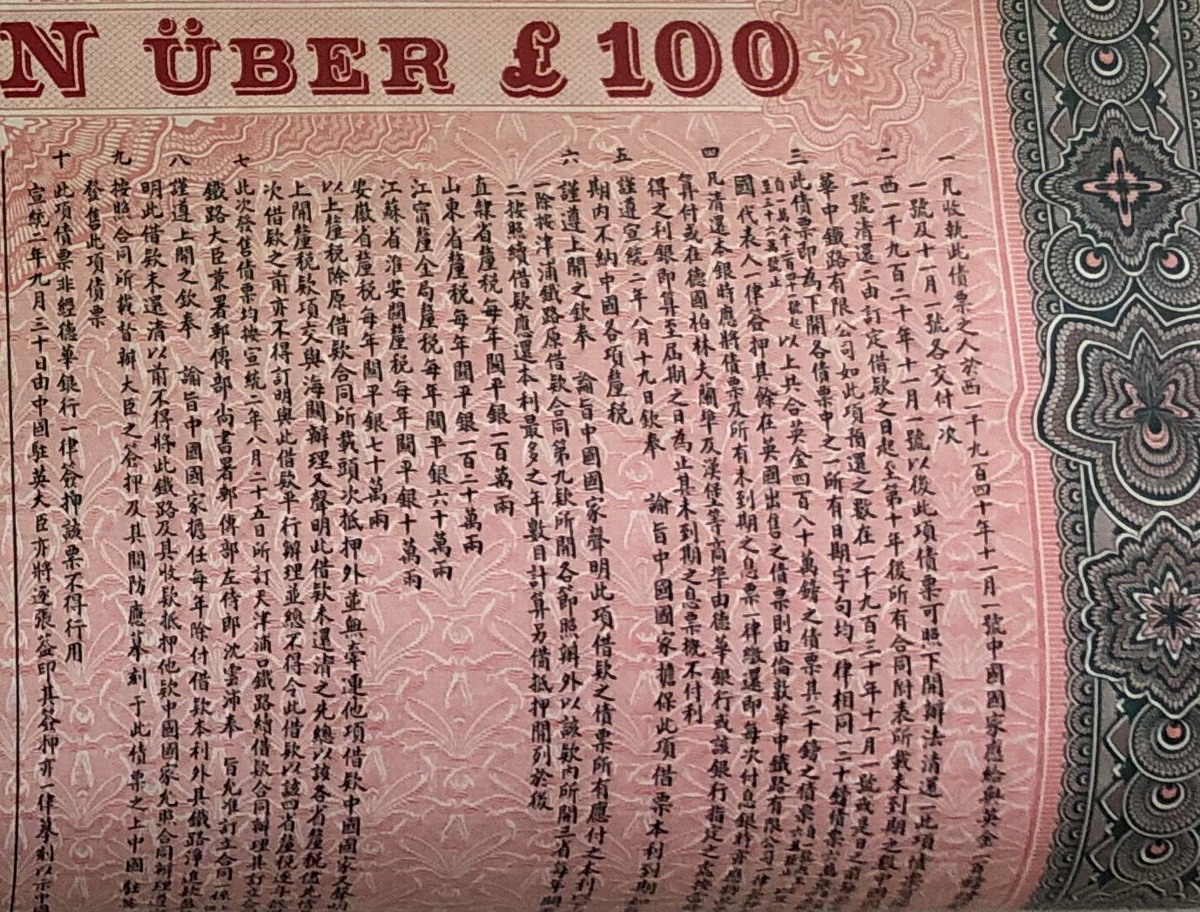 N ÜBER £100
一 凡收執此債票之人於西一千九百四十年十一月一號中國國家應給與英金一百鎊
一號及十一月一號各交付一次
二 西一千九百二十年十一月一號以後此項債票可照下開辦法清還一此項
一號清還二由訂定借款之日起至第十年後所有合同附表所載未到期之數中國
華中鐵路有限公司如此項預還之數在一千九百三十年十一月一號或是日之前
三 此債票即為下開各債票中之一所有日期字句均一律相同二十鎊債票六萬
以上共合英金四百八十萬鎊之債票其二十鎊之債票
國代表人一律簽押其餘在英國出售之債票則由倫敦華中鐵路有限公司一律
四 凡清還本銀時應將債票及所有未到期之息票一律繳還即每次付息銀時亦應將
算付或在德國柏林夫蘭埠及漢堡等商埠由德華銀行或該銀行指定之處
得之利銀即算至屆期之日為止其未到期之息票概不付利
五 謹遵宣統二年八月十九日欽奉 諭旨中國國家擔保此項借票本利到期
期內不納中國各項釐稅
六 謹遵上開之欽奉 諭旨中國國家聲明此項借款之債票所有應付之本利
一除按津浦鐵路原借款合同第九款所開各節照辦外以該款內所開三省每年
二按照續借款應還本利最多之年數目計算另備抵押開列於後
直隸省釐稅每年關平銀一百萬兩
山東省釐稅每年關平銀一百二十萬兩
江甯釐金全局釐稅每年關平銀六十萬兩
江蘇省淮安關釐稅每年關平銀十萬兩
安徽省釐稅每年關平銀七十萬兩
以上釐稅除原借款合同所載頭次抵押外並無牽連他項借款中國國家聲明
上開釐稅款項交與海關辦理又聲明此借款未還清之先總以該各省釐稅儘先
次借款之前亦不得訂明與此借款平行辦理並總不得令此借款以該四省釐稅逐年
七 此次發售債票均按宣統二年八月二十五日所訂天津浦口鐵路續借款合同辦理其訂立合
鐵路大臣兼署郵傳部尚書署郵傳部左侍郎沈雲沛奉 旨允准訂立合同
八 謹遵上開之欽奉 諭旨中國國家擔任每年除付借款本利外其鐵路淨進款
明此借款未還清以前不得將此鐵路及其收款抵押他款中國國家允照合同辦理
九 按照合同所載督辦大臣之簽押及其關防應摹刻于此債票之上中國駐
發售此項債票
十 此項債票非經德華銀行一律簽押該票不得行用
宣統二年九月三十日由中國駐英大臣亦將逐張蓋印其簽押亦一律摹刻以示中國